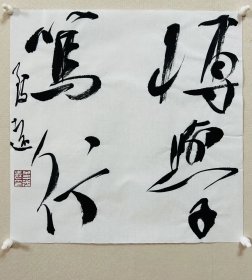 博學
篤行